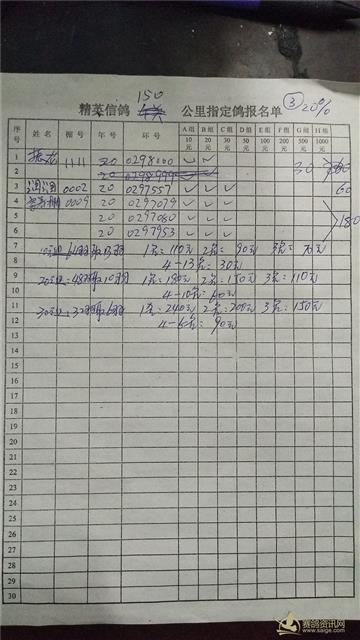 150
精英信鸽 公里指定鸽报名单 ③ 20%
序号 姓名 棚号 年号 环号 A组10元 B组20元 C组30元 D组50元 E组100元 F组200元 G组500元 H组1000元
1 1111 20 0298100 ✓ ✓ 30
2 20
3 0002 20 0297557 ✓ ✓ ✓ 60
4 0009 20 0297079 ✓ ✓ ✓
5 20 0297080 ✓ ✓ ✓ 180
6 20 0297953 ✓ ✓ ✓
7 1名:110元 2名:90元 3名:70元
8 4-13名:30元
9 1名:190元 2名:150元 3名:110元
10 4-10名:60元
11 1名:240元 2名:200元 3名:150元
12 4-6名:90元
13
14
15
16
17
18
19
20
21
22
23
24
25
26
27
28
29
30
赛鸽资讯网
www.saige.com